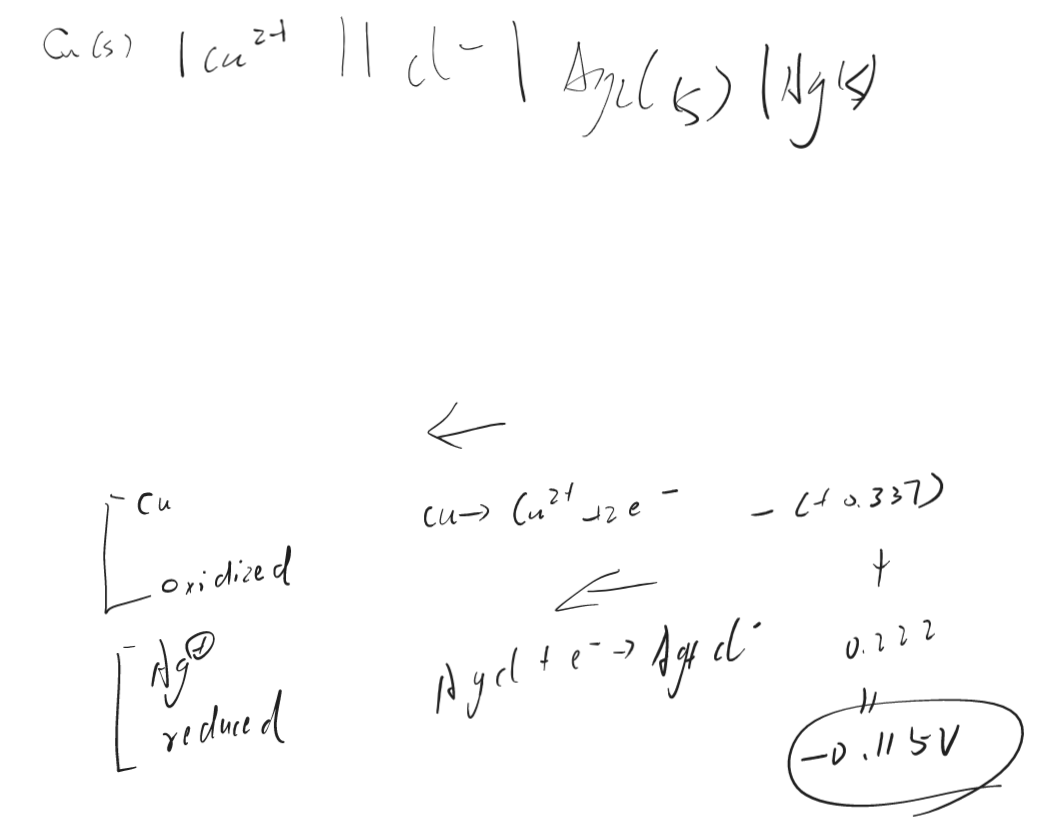 Cu(s) | Cu²⁺ || Cl⁻ | AgCl(s) | Ag(s)
←
Cu
oxidized
Cu → Cu²⁺ + 2e⁻ - (+0.337)
+
←
Ag⁺
reduced
AgCl + e⁻ → Ag + Cl⁻ 0.222
||
-0.115V